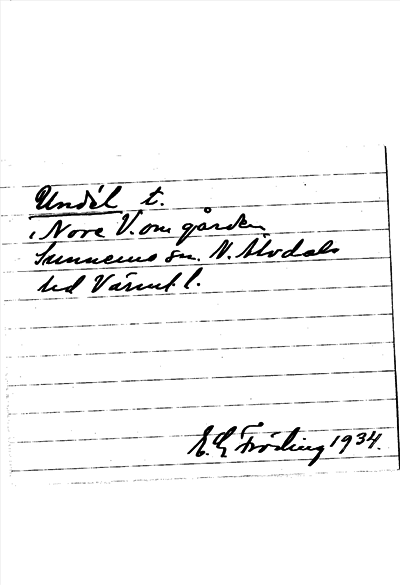 Undél t.
Nore V. om gården
Sunnemo sn. N. Älvdals
hd Värml. l.
E. G. Fröding 1934.